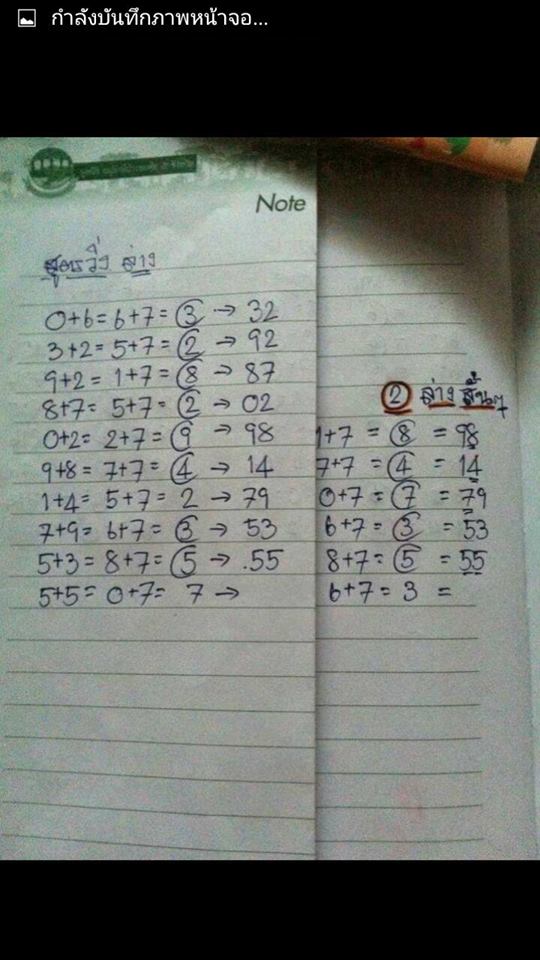 กำลังบันทึกภาพหน้าจอ...
Note
สูตรวิ่ง ล่าง
0+6=6+7=3 → 32
3+2=5+7=2 → 92
9+2=1+7=8 → 87
8+7=5+7=2 → 02
0+2=2+7=9 → 98
9+8=7+7=4 → 14
1+4=5+7=2 → 79
7+9=6+7=3 → 53
5+3=8+7=5 → .55
5+5=0+7= 7 →
2 ล่าง
1+7 = 8 = 98
7+7 = 4 = 14
0+7 = 7 = 79
6+7 = 3 = 53
8+7 = 5 = 55
6+7 = 3 =